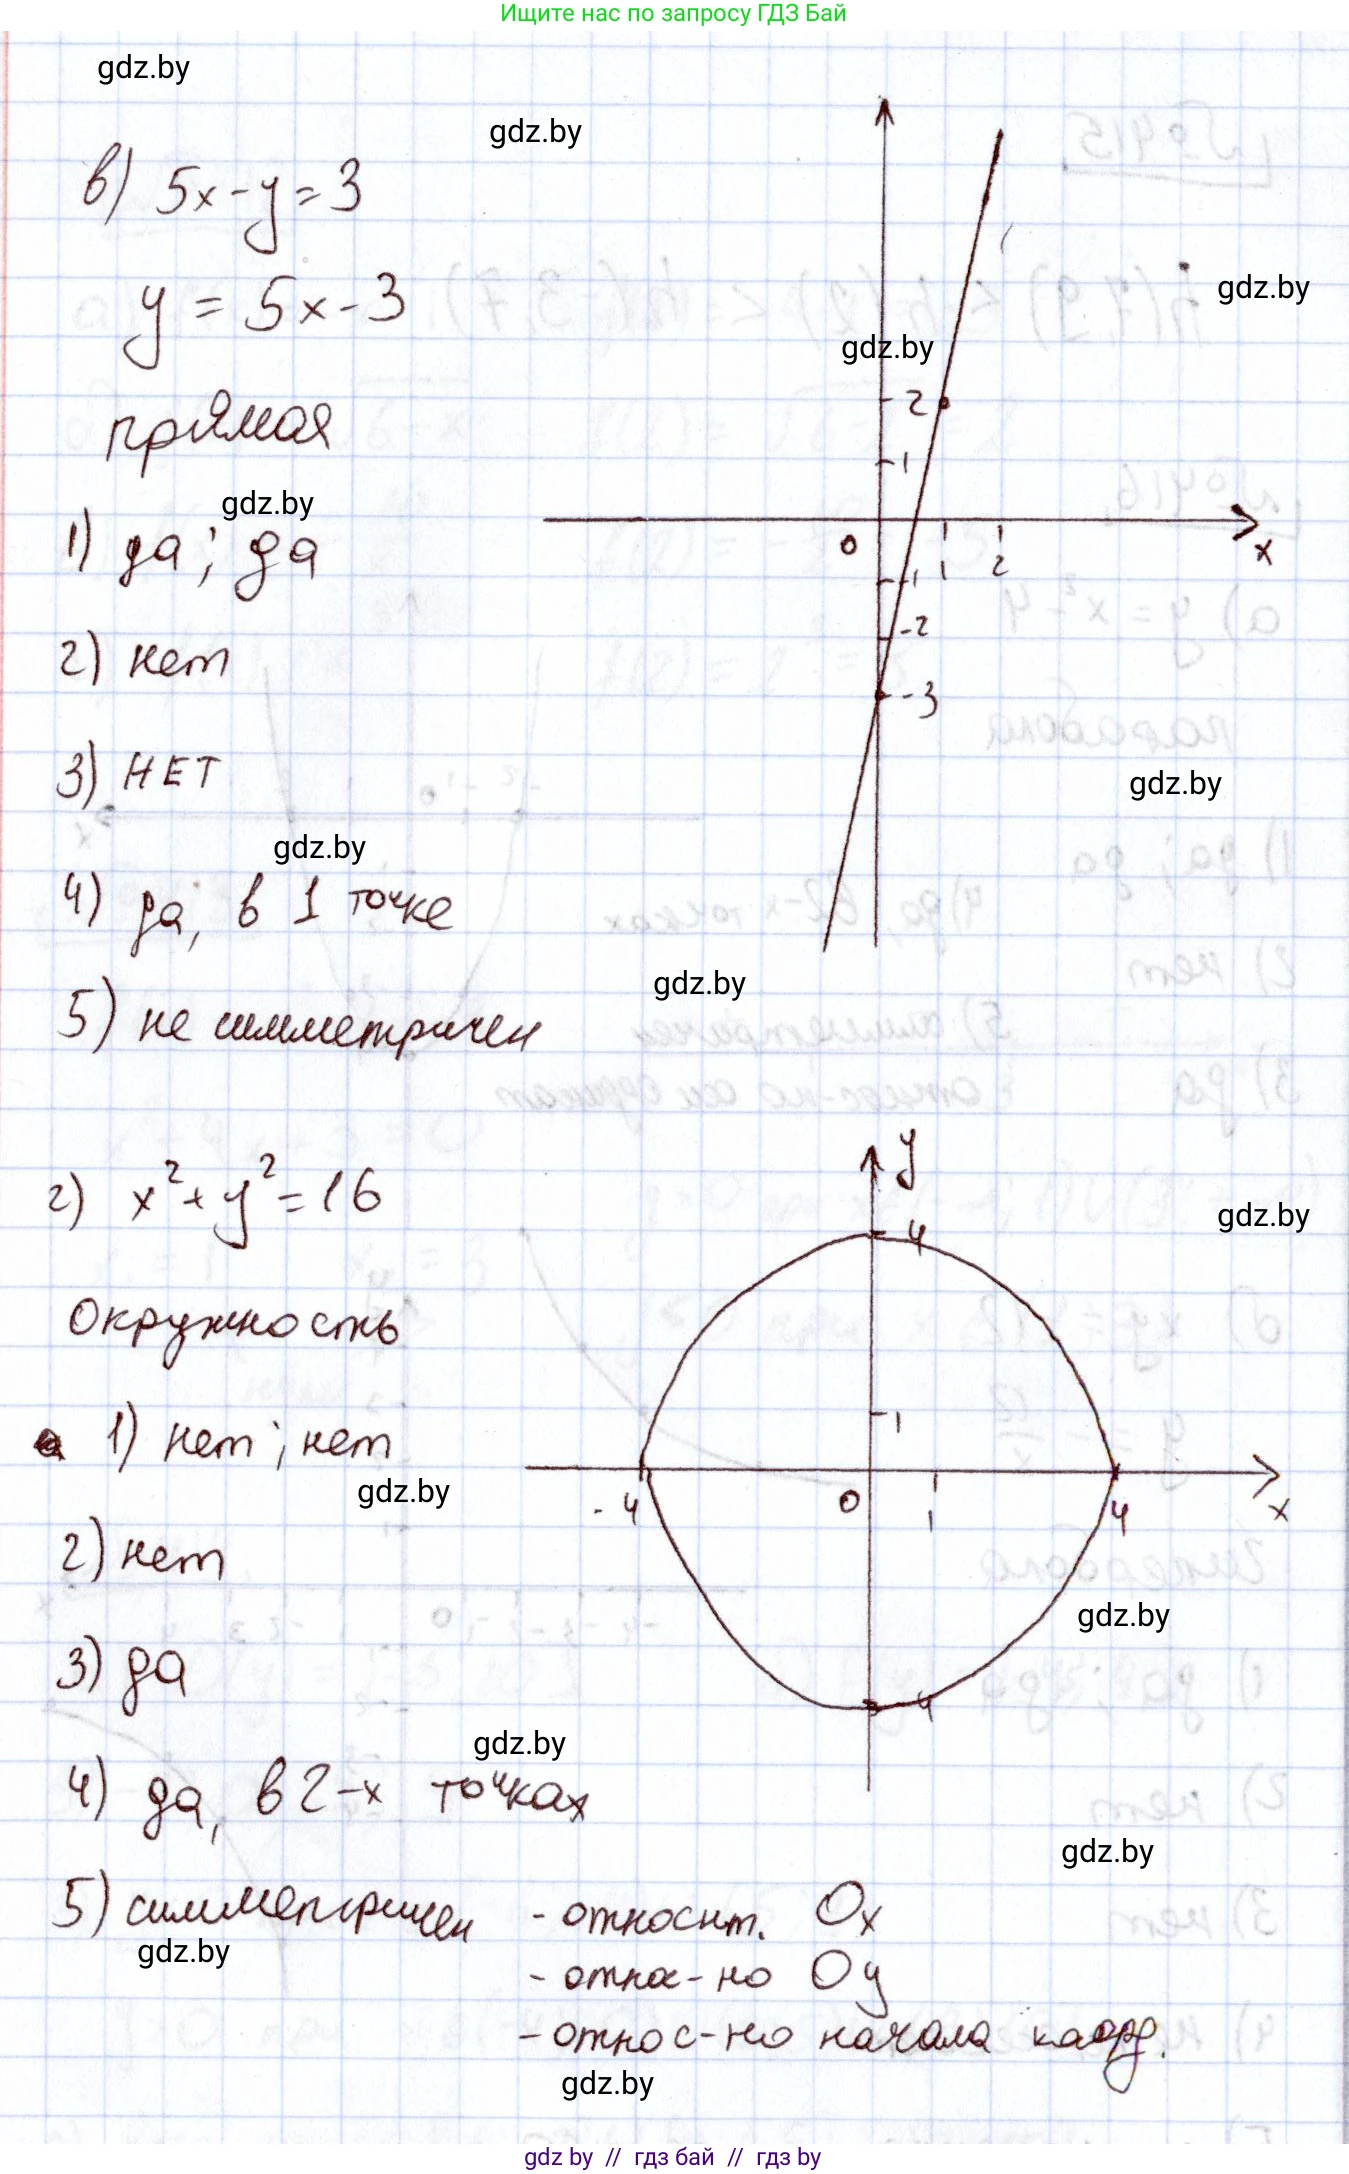 Ищите нас по запросу ГДЗ Бай
gdz.by
gdz.by
в) 5x-y=3
y = 5x-3
gdz.by
gdz.by
прямая
2
1
0
1
2
x
-1
-2
-3
gdz.by
1) да; да
2) нет
3) НЕТ
gdz.by
gdz.by
4) да, в 1 точке
gdz.by
5) не симметричен
г) x²+y²=16
y
4
1
-4
0
1
4
x
4
gdz.by
Окружность
1) нет; нет
gdz.by
2) нет
gdz.by
3) да
gdz.by
4) да, в 2-х точках
gdz.by
5) симметричен - относит. Ox
gdz.by
- относ-но Oy
- относ-но начала коорд.
gdz.by
gdz by // гдз бай // гдз by